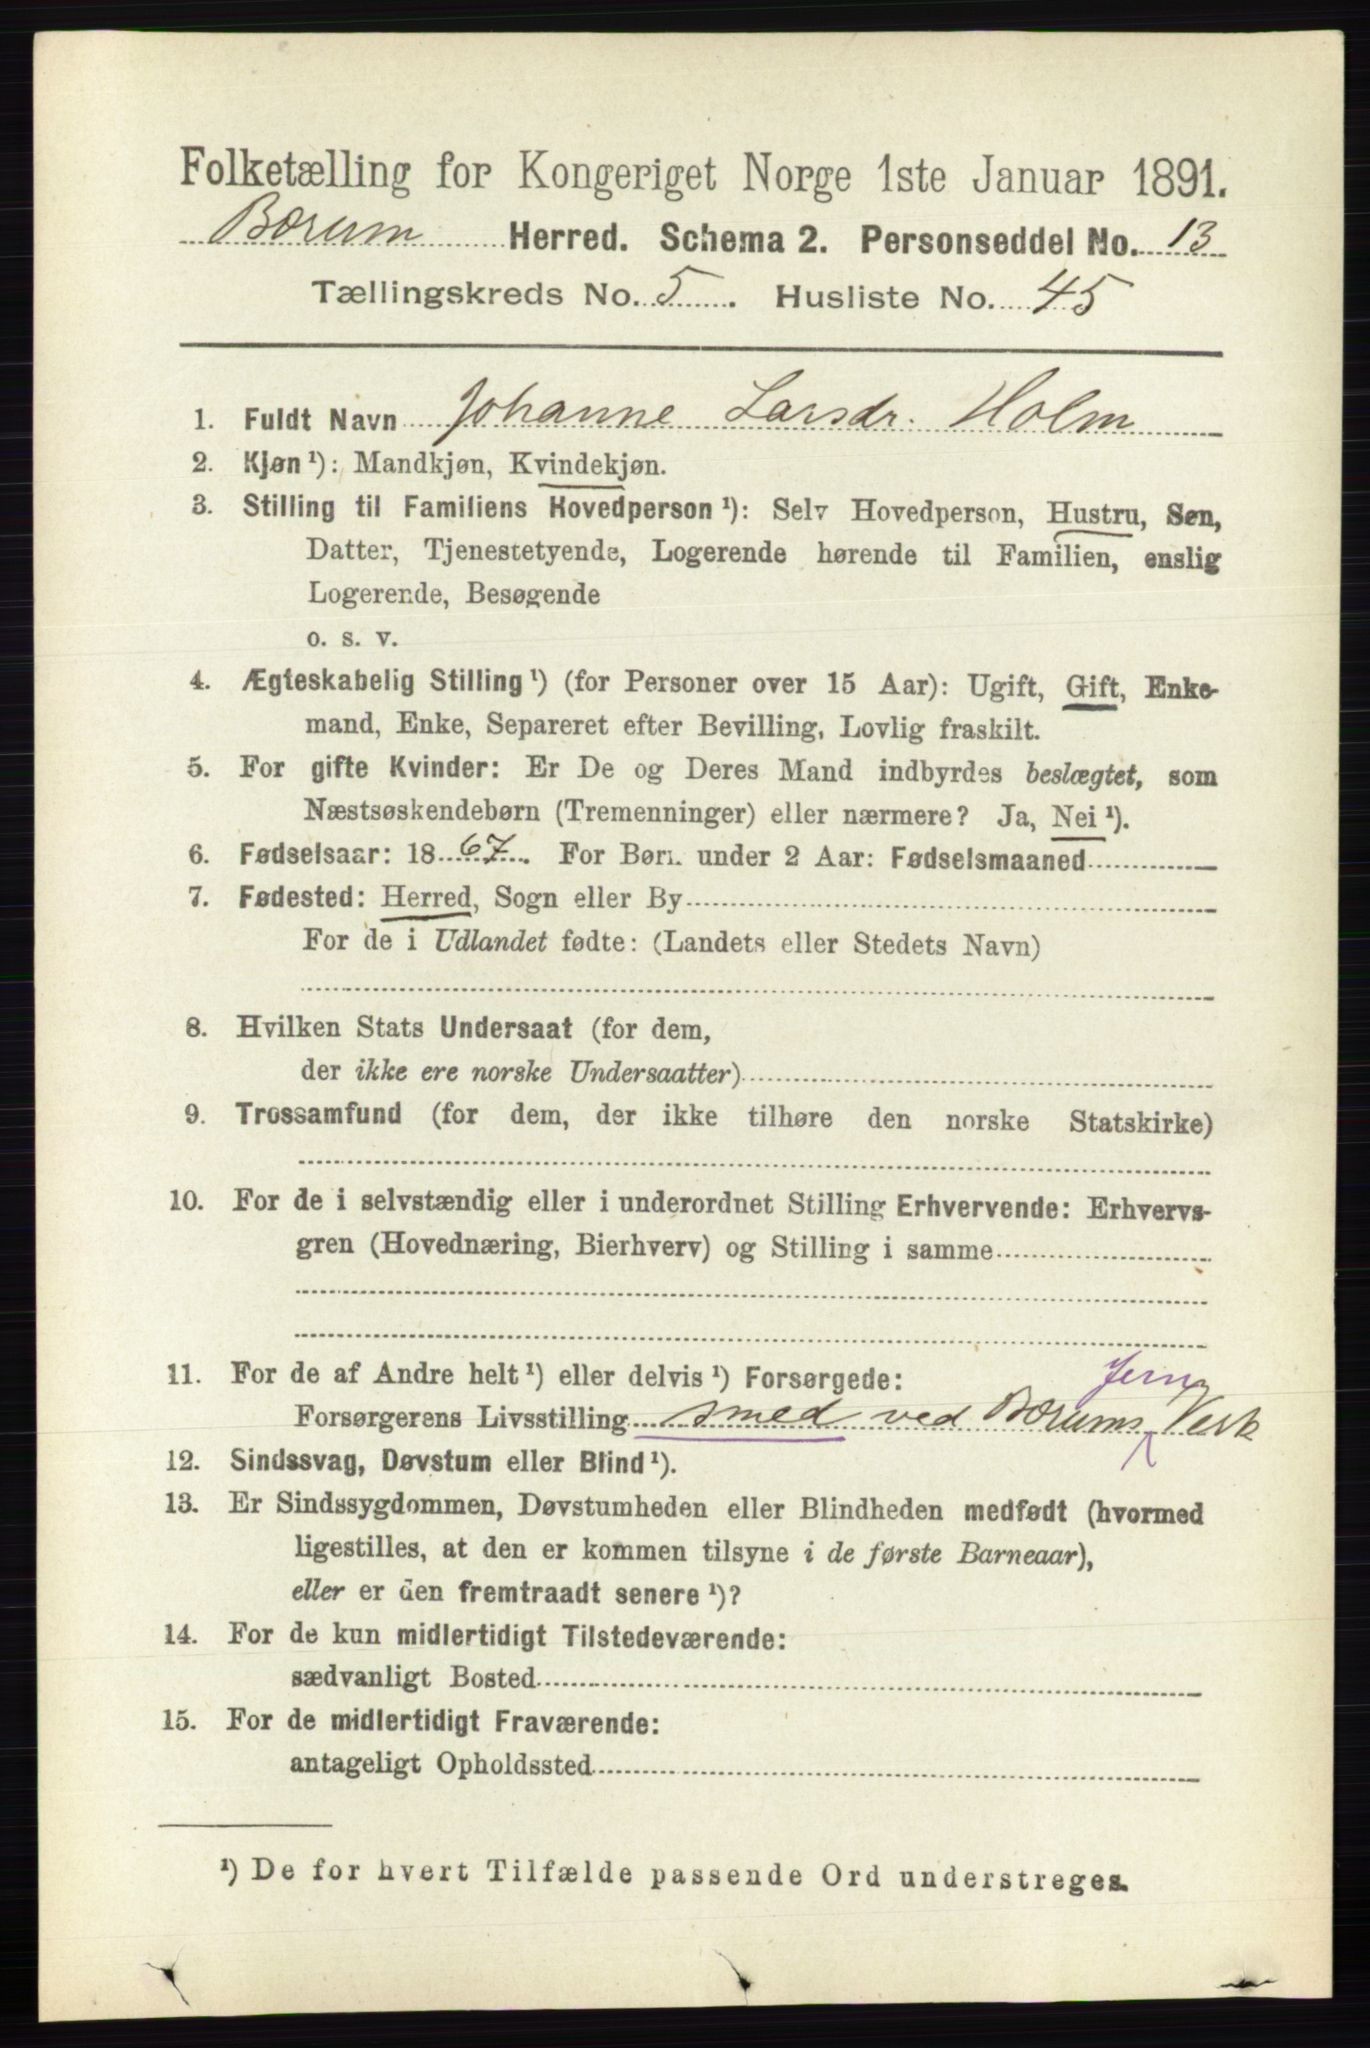 Folketælling for Kongeriget Norge 1ste Januar 1891.
Bærum Herred. Schema 2. Personseddel No. 13
Tællingskreds No. 5. Husliste No. 45
1. Fuldt Navn Johanne Larsdr. Holm
2. Kjøn ¹): Mandkjøn, Kvindekjøn.
3. Stilling til Familiens Hovedperson ¹): Selv Hovedperson, Hustru, Søn,
Datter, Tjenestetyende, Logerende hørende til Familien, enslig
Logerende, Besøgende
o. s. v.
4. Ægteskabelig Stilling ¹) (for Personer over 15 Aar): Ugift, Gift, Enke-
mand, Enke, Separeret efter Bevilling, Lovlig fraskilt.
5. For gifte Kvinder: Er De og Deres Mand indbyrdes beslægtet, som
Næstsøskendebørn (Tremenninger) eller nærmere? Ja, Nei ¹).
6. Fødselsaar: 1867. For Børn under 2 Aar: Fødselsmaaned
7. Fødested: Herred, Sogn eller By
For de i Udlandet fødte: (Landets eller Stedets Navn)
8. Hvilken Stats Undersaat (for dem,
der ikke ere norske Undersaatter)
9. Trossamfund (for dem, der ikke tilhøre den norske Statskirke)
10. For de i selvstændig eller i underordnet Stilling Erhvervende: Erhvervs-
gren (Hovednæring, Bierhverv) og Stilling i samme
11. For de af Andre helt ¹) eller delvis ¹) Forsørgede:
Jern
Forsørgerens Livsstilling smed ved Bærums Verk
12. Sindssvag, Døvstum eller Blind ¹).
13. Er Sindssygdommen, Døvstumheden eller Blindheden medfødt (hvormed
ligestilles, at den er kommen tilsyne i de første Barneaar),
eller er den fremtraadt senere ¹)?
14. For de kun midlertidigt Tilstedeværende:
sædvanligt Bosted
15. For de midlertidigt Fraværende:
antageligt Opholdssted
¹) De for hvert Tilfælde passende Ord understreges.